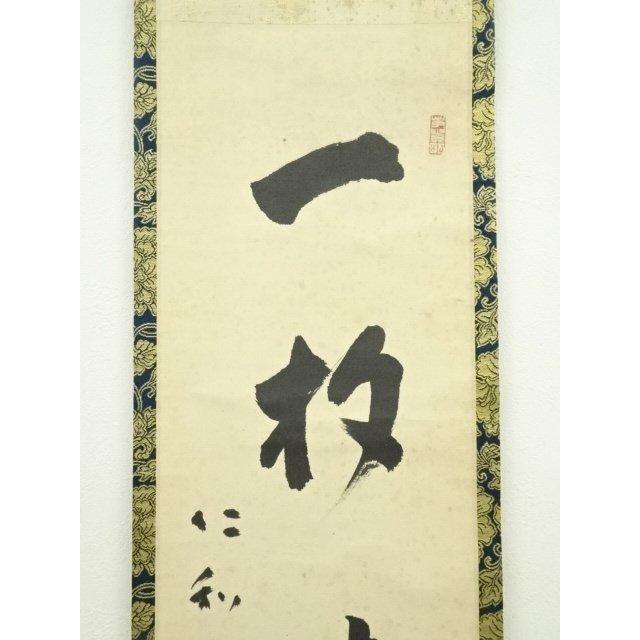 一枚
仁和